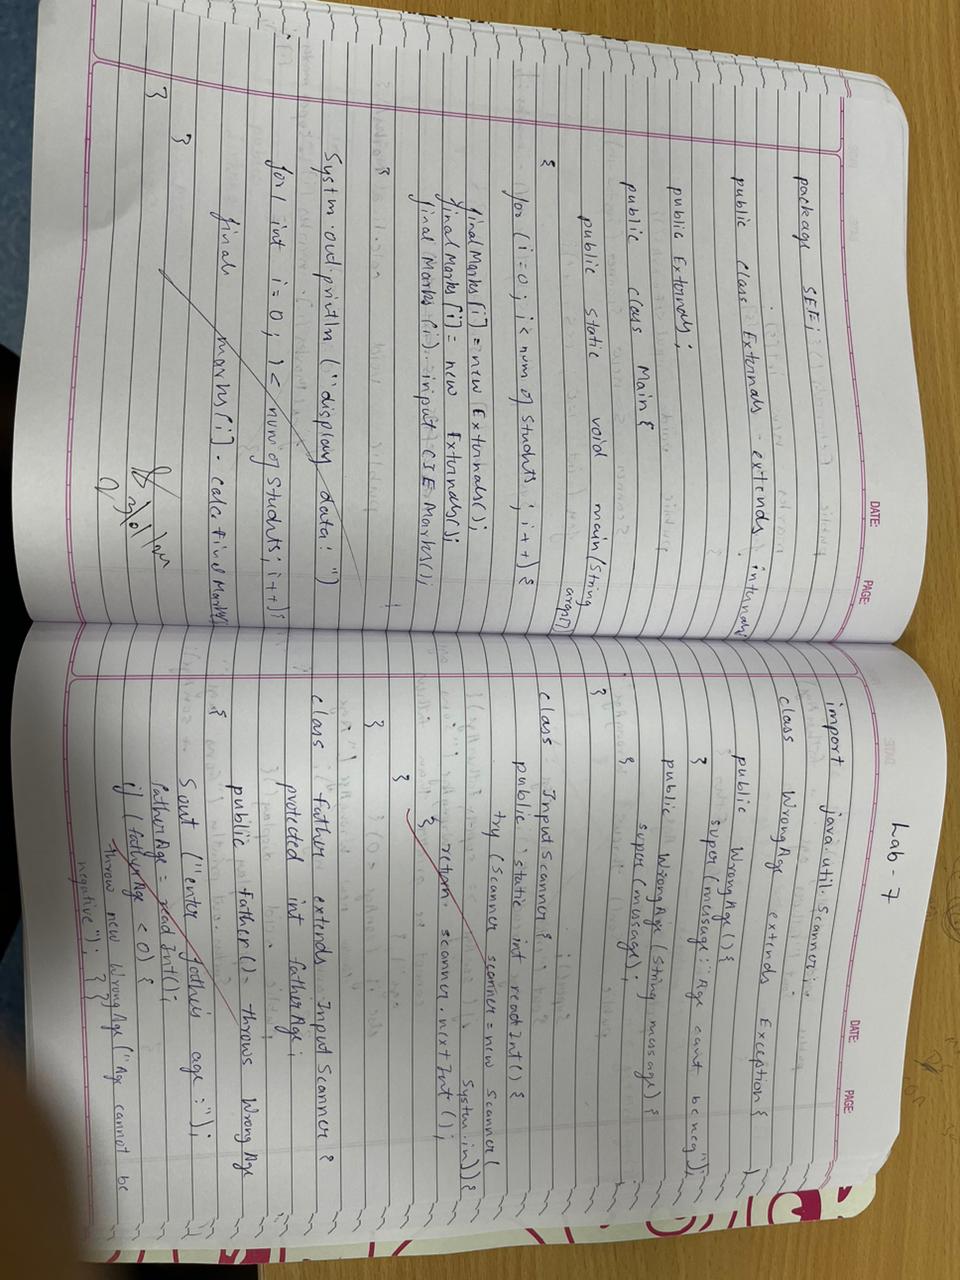 DATE:
PAGE:
package SEE;
public class Externals extends internals
public Externals;
public class Main {
public static void main(String
args[])
{
for (i=0; i< num of students; i++) {
finalMarks[i] = new Externals();
finalMarks[i] = new Externals();
final Marks [i]. input CIE Marks();
}
System.out.println ("display data:")
for( int i=0; i< num of Students; i++){
final marks[i]. calc Final Marks
}
}
Lab-7
DATE:
PAGE:
import java.util.Scanner;
class WrongAge extends Exception {
public WrongAge() {
super (message: "Age cant be neg");
}
public WrongAge (String message) {
super (message);
}
}
class InputScanner {
public static int readInt() {
try (Scanner scanner = new Scanner(
System.in)) {
return scanner.nextInt();
}
}
}
class father extends Input Scanner {
protected int fatherAge;
public father() throws WrongAge
{
Sout ("enter father's age:");
fatherAge = readInt();
if (fatherAge < 0) {
throw new WrongAge("Age cannot be
negative"); } }